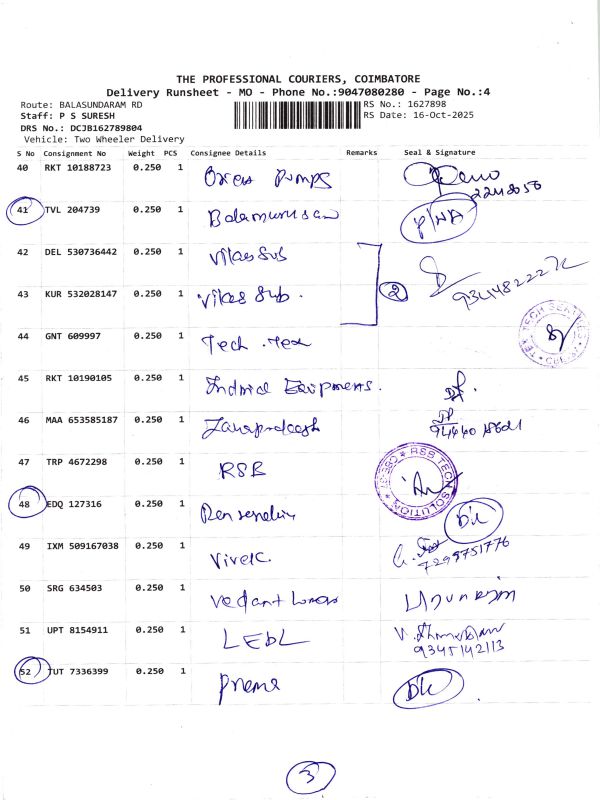 THE PROFESSIONAL COURIERS, COIMBATORE
Delivery Runsheet - MO - Phone No.:9047080280 - Page No.:4
Route: BALASUNDARAM RD RS No.: 1627898
Staff: P S SURESH RS Date: 16-Oct-2025
DRS No.: DCJB162789804
Vehicle: Two Wheeler Delivery
S No Consignment No Weight PCS Consignee Details Remarks Seal & Signature
40 RKT 10188723 0.250 1 Pumps
41 TVL 204739 0.250 1 Balamurugan P/NA
42 DEL 530736442 0.250 1 Vikas Sub
43 KUR 532028147 0.250 1 Vikas Sub. 2
44 GNT 609997 0.250 1 Tech . Tex
45 RKT 10190105 0.250 1 Equipments.
46 MAA 653585187 0.250 1
47 TRP 4672298 0.250 1 RSB
RSB TECH SOLUTION
48 EDQ 127316 0.250 1 D/L
49 IXM 509167038 0.250 1 Vivek.
7299751776
50 SRG 634503 0.250 1 Vedant
51 UPT 8154911 0.250 1 LEBL
9345142113
52 TUT 7336399 0.250 1 Prema D/L
3